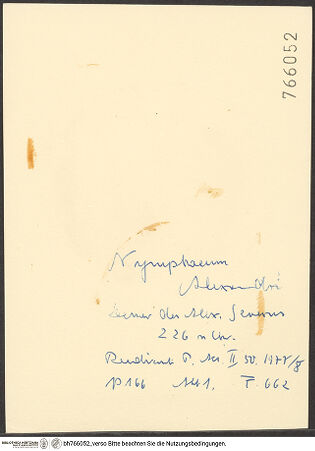 766052
Nymphaeum
Alexandri
Denar des Alex. Severus
226 n Chr.
Rendiconti P. Acc II 50. 1977/8
p 166 Abb 1. T. 662
bh766052_verso Bitte beachten Sie die Nutzungsbedingungen.